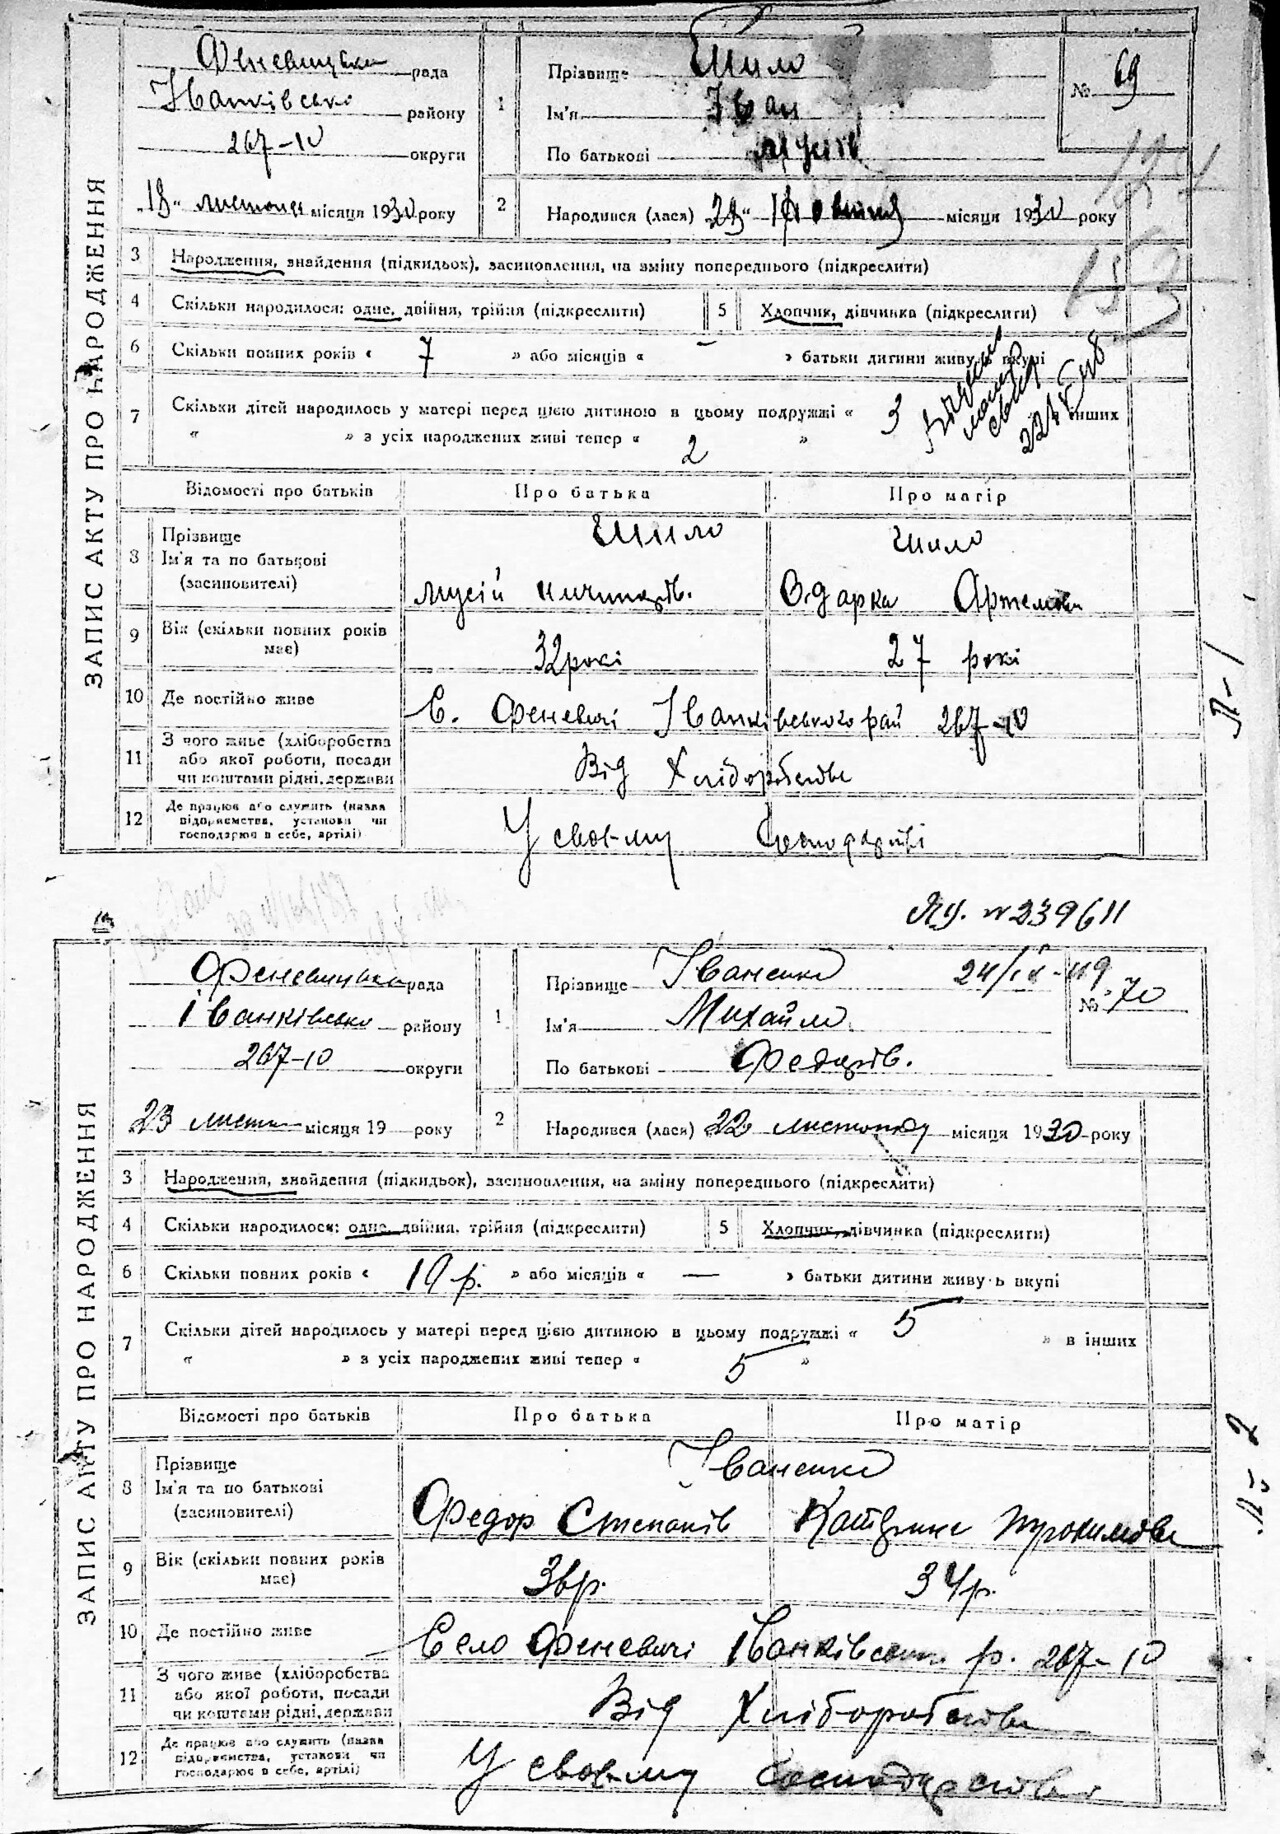 ЗАПИС АКТУ ПРО НАРОДЖЕННЯ
Феневицька рада
Іванківсько району
267-10 округи
"18" листопа місяця 1930 року
1 Прізвище Шило
Ім'я Іван
По батькові Мусіїв
№ 69
153
2 Народився (лася) 29" Жовтня місяця 1930 року
3 Народження, знайдення (підкидьок), засиновлення, на зміну попереднього (підкреслити)
4 Скільки народилося: одне, двійня, трійня (підкреслити) 5 Хлопчик, дівчинка (підкреслити)
6 Скільки повних років « 7 » або місяців « – » батьки дитини живуть вкупі
7 Скільки дітей народилось у матері перед цією дитиною в цьому подружжі « 3 » в інших
« » з усіх народжених живі тепер « 2 »
Відомості про батьків Про батька Про матір
8 Прізвище Шило Шило
Ім'я та по батькові
(засиновителі) Мусій Ничипорів. Одарка Артемова
9 Вік (скільки повних років має) 32 рокі 27 рокі
10 Де постійно живе С. Феневичі Іванківського рай 267-10
11 З чого живе (хліборобства
або якої роботи, посади
чи коштами рідні, держави Від Хліборобства
12 Де працює або служить (назва
підприємства, установи чи
господарює в себе, артілі) У свої-му Господарстві
Л-1
№ 239611
ЗАПИС АКТУ ПРО НАРОДЖЕННЯ
Феневицька рада
Іванківсько району
267-10 округи
23 листп місяця 19 року
1 Прізвище Іваненко
Ім'я Михайло
По батькові Федорів.
24/IX-49
№ 70
2 Народився (лася) 22 листопаду місяця 1930 року
3 Народження, знайдення (підкидьок), засиновлення, на зміну попереднього (підкреслити)
4 Скільки народилося: одне, двійня, трійня (підкреслити) 5 Хлопчик, дівчинка (підкреслити)
6 Скільки повних років « 19 р. » або місяців « — » батьки дитини живуть вкупі
7 Скільки дітей народилось у матері перед цією дитиною в цьому подружжі « 5 » в інших
« » з усіх народжених живі тепер « 5 »
Відомості про батьків Про батька Про матір
8 Прізвище Іваненко
Ім'я та по батькові
(засиновителі) Федор Степанів Катерина Прохимова
9 Вік (скільки повних років має) 38 р. 34 р.
10 Де постійно живе Село Феневичі Іванківськ. р. 267-10
11 З чого живе (хліборобства
або якої роботи, посади
чи коштами рідні, держави Від Хліборобства
12 Де працює або служить (назва
підприємства, установи чи
господарює в себе, артілі) У свої-му господарстві